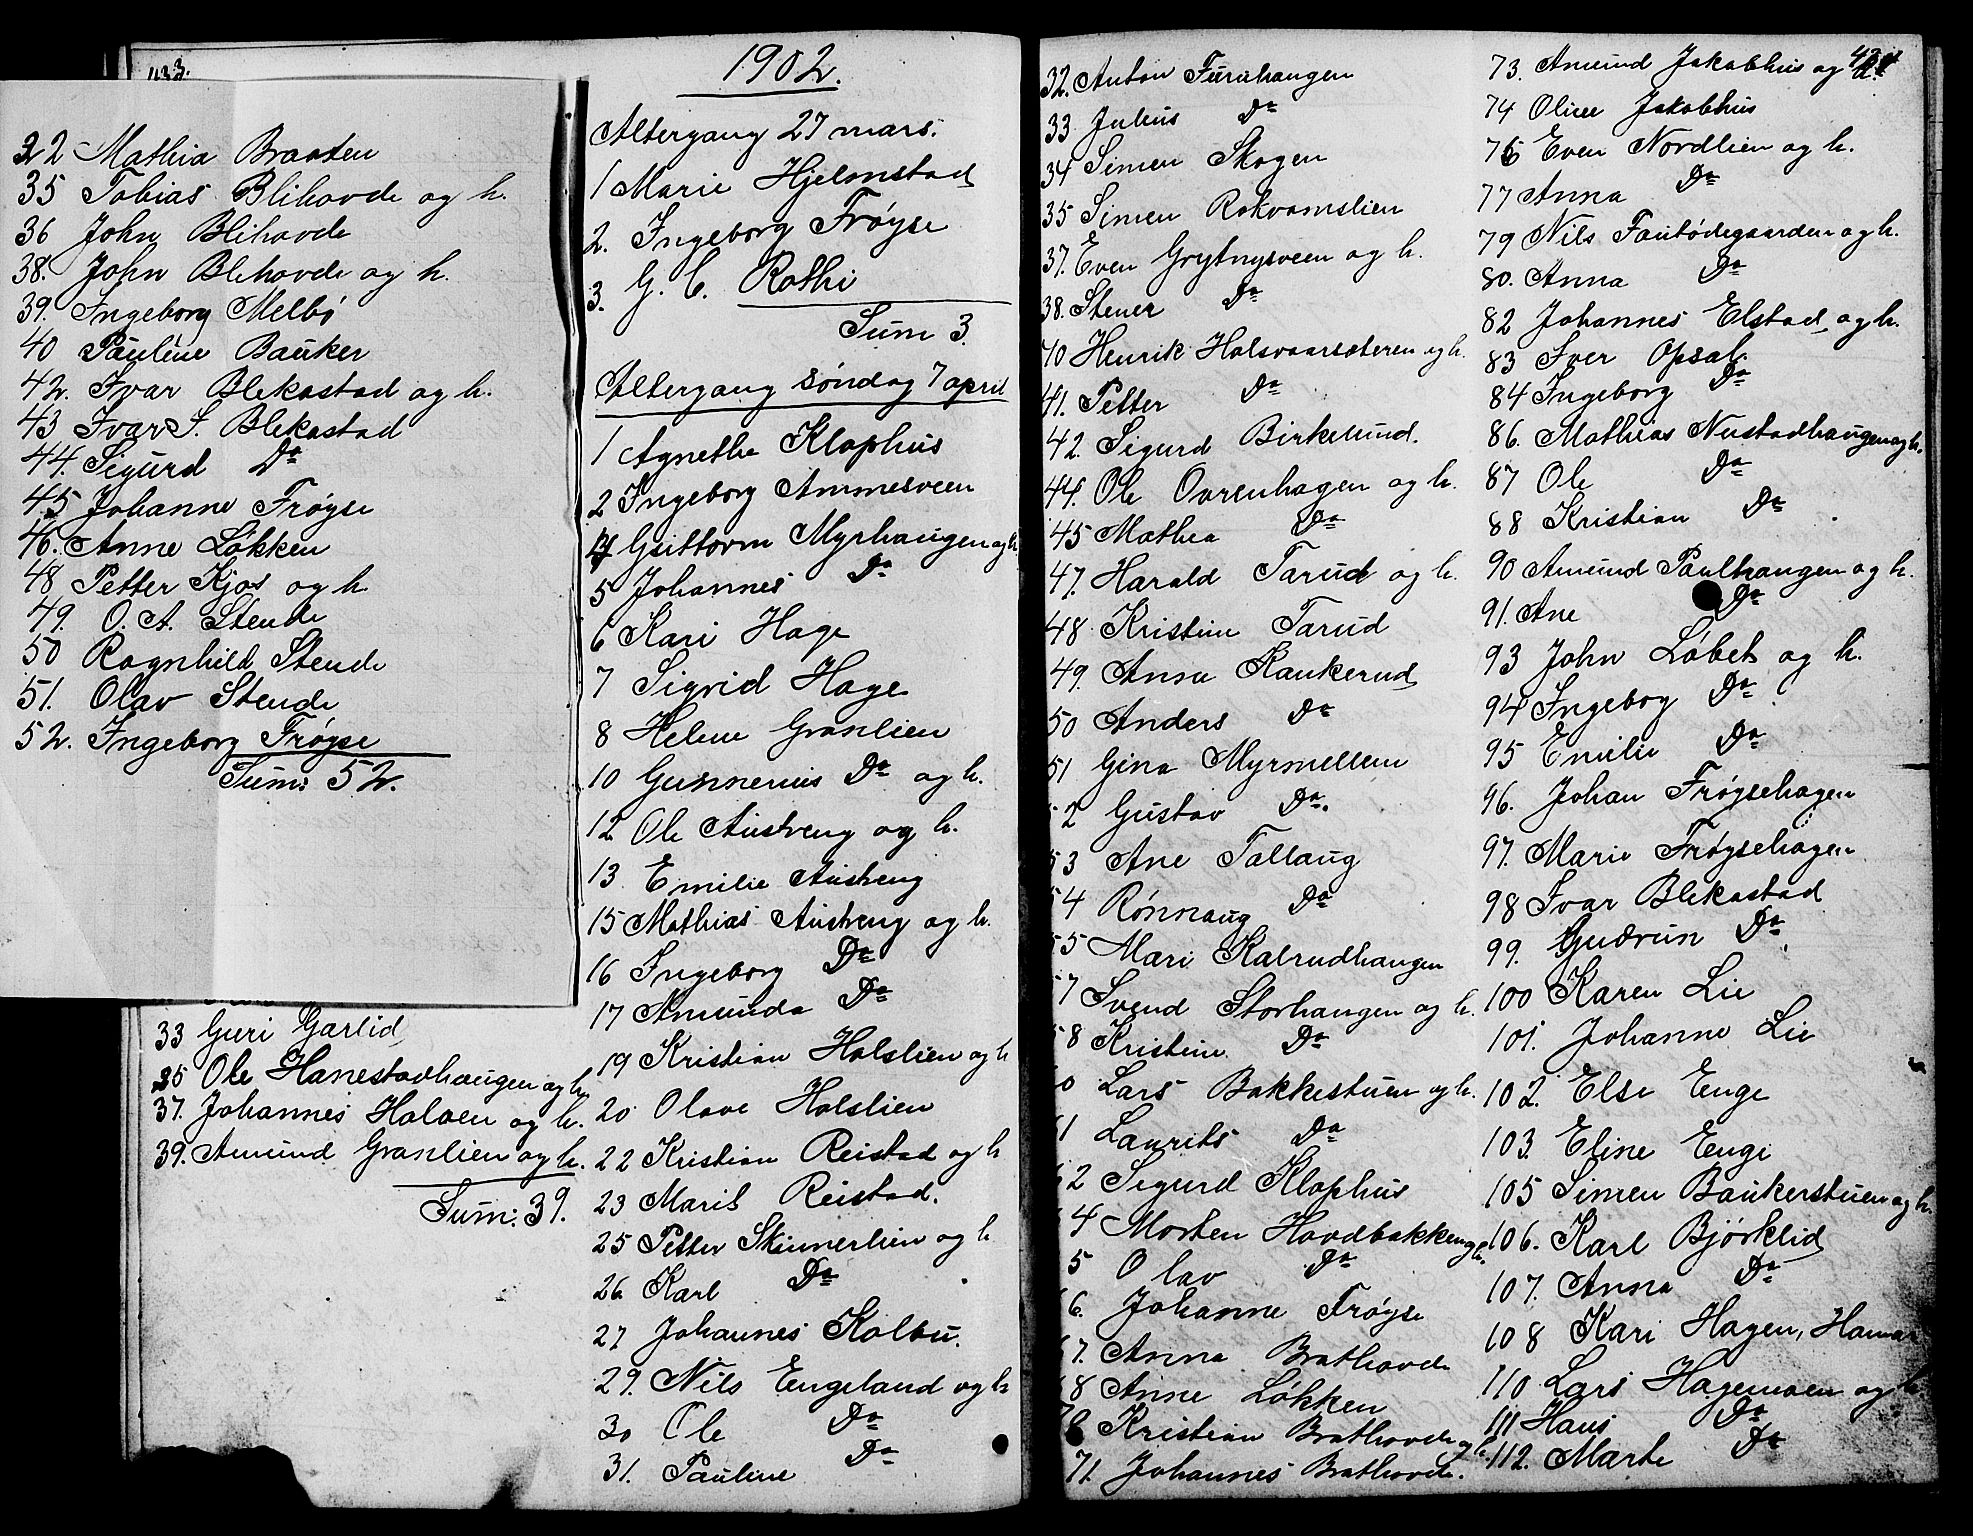 433.
22 Mathia Braaten
35 Tobias Blihovde og h.
36 John Blihovde
38. John Blehovde og h.
39. Ingeborg Melbö
40 Pauline Bauker
42. Ivar Blekastad og h.
43 Ivar S. Blekastad
44. Sigurd Do
45 Johanne Frøyse
46. Anne Løkken
48 Petter Kjos og h
49. O. A. Stende
50 Ragnhild Stende
51. Olav Stende
52. Ingeborg Frøyse
Sum: 52.
33 Guri Garlid
35 Ole Hanestadhaugen og h.
37. Johannes Holoen og h.
39. Amund Granlien og h.
Sum: 39.
1902.
Altergang 27 mars.
1 Marie Hjelmstad
2. Ingeborg Frøyse
3. G. C. Rothi
Sum 3.
Altergang söndag 7 april
1 Agnethe Klophus
2 Ingeborg Ammesveen
4 Guttorm Myrhaugen og h
5 Johannes Do
6 Kari Hage
7 Sigrid Hage
8 Helene Granlien
10 Gunnerius Do og h.
12 Ole Austreng og h.
13 Emilie Austreng
15 Mathias Austreng og h.
16 Ingeborg Do
17 Amunda Do
19 Kristian Holslien og h
20 Olave Holslien
22 Kristian Reistad og h
23 Marit Reistad.
25 Petter Skinnerlien og h
26. Karl Do
27 Johannes Kolbu.
29. Nils Engeland og h
30 Ole Do
31. Pauline Do
32. Anton Furuhaugen
33 Julius Do
34 Simen Skogen
35 Simen Rokvamslien
37. Even Grytnysveen og h.
38. Stener Do
40 Henrik Holsvaarseteren og h.
41. Petter Do
42. Sigurd Birkelund.
44. Ole Ovrenhagen og h.
45 Mathea Do
47. Harald Tarud og h.
48 Kristine Tarud
49. Anna Kaukerud
50 Anders Do
51 Gina Myrmellem
52 Gustav Do.
53 Ane Tallaug
54 Rønnaug Do
55 Mari Kalrudhaugen
57 Svend Storhaugen og h.
58 Kristine Do
60 Lars Bakkestuen og h.
61 Laurits Do
62 Sigurd Klophus
64 Morten Hovdbakken og h.
65 Olav Do
66. Johanne Frøyse
67. Anna Brathovde
68 Anne Løkken
70 Kristian Brathovde og h.
71. Johannes Brathovde.
73. Amund Jakobhus og h.
74 Oline Jakobhus
76 Even Nordlien og h.
77 Anna Do
79 Nils Fautødegaarden og h.
80. Anna Do
82 Johannes Elstad og h.
83 Iver Opsal.
84 Ingeborg Do
86. Mathias Nustadhaugen og h.
87 Ole Do
88 Kristian Do
90 Amund Paulhaugen og h.
91. Ane Do
93 John Løbet og h.
94 Ingeborg Do
95 Emilie Do
96. Johan Frøysehagen
97. Marie Frøysehagen
98 Ivar Blekastad
99. Gudrun Do
100 Karen Lie
101. Johanne Lie
102. Else Enge
103. Eline Enge
105 Simen Baukerstuen og h.
106. Karl Bjørklid
107. Anna Do
108 Kari Hagen, Hamar
110 Lars Hagemoen og h.
111 Hans Do
112. Marte Do